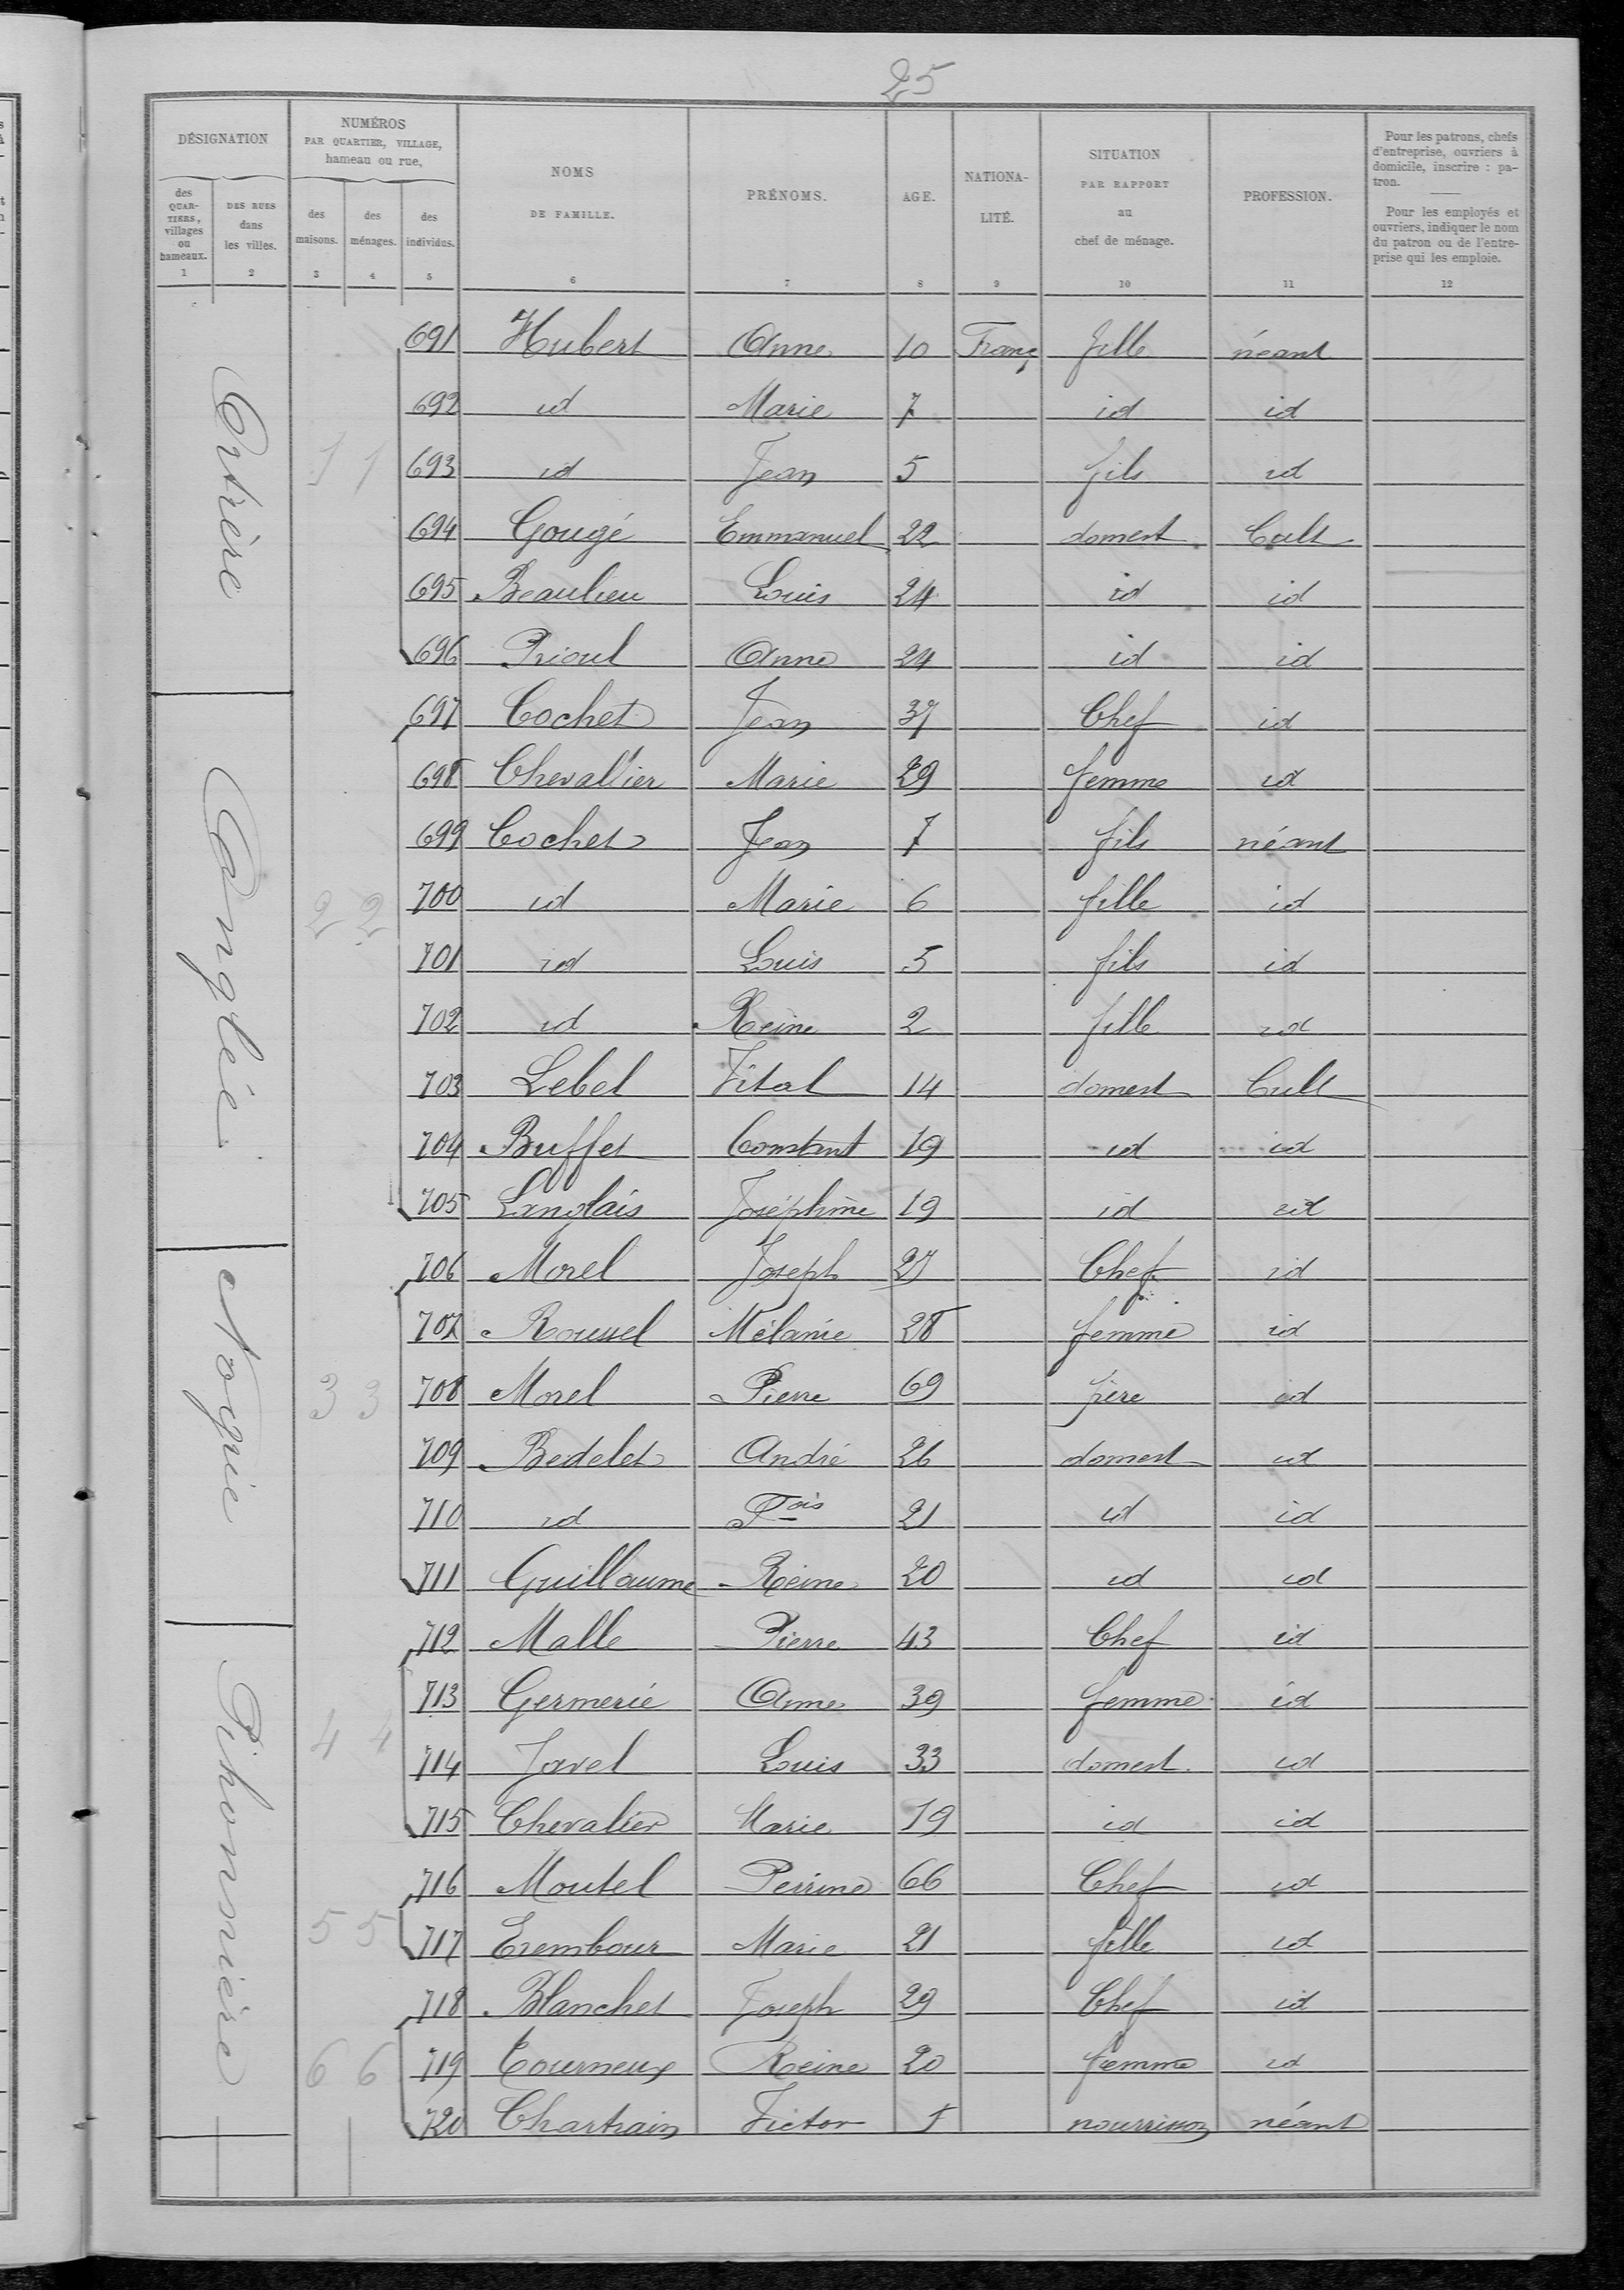 25
DÉSIGNATION
NUMÉROS
PAR QUARTIER, VILLAGE,
hameau ou rue,
NOMS
DE FAMILLE.
PRÉNOMS.
AGE.
NATIONA-
LITÉ.
SITUATION
PAR RAPPORT
au
chef de ménage.
PROFESSION.
Pour les patrons, chefs
d'entreprise, ouvriers à
domicile, inscrire : pa-
tron.
Pour les employés et
ouvriers, indiquer le nom
du patron ou de l'entre-
prise qui les emploie.
des
QUAR-
TIERS,
villages
ou
hameaux.
DES RUES
dans
les villes.
des
maisons.
des
ménages.
des
individus.
1 2 3 4 5 6 7 8 9 10 11 12
691 Hubert Anne 10 Franç fille néant
692 id Marie 7 id id
1 1 693 id Jean 5 fils id
694 Gougé Emmanuel 22 domest Cult
695 Beaulieu Louis 24 id id
696 Prioul Anne 24 id id
697 Cochet Jean 37 Chef id
698 Chevallier Marie 29 femme id
699 Cochet Jean 7 fils néant
Canglée
2 2 700 id Marie 6 fille id
701 id Louis 5 fils id
702 id Reine 2 fille id
703 Lebel Vital 14 domest Cult
704 Buffet Constant 19 id id
705 Langlais Joséphine 19 id id
706 Morel Joseph 27 Chef id
707 Roussel Mélanie 28 femme id
3 3 708 Morel Pierre 69 père id
709 Bedelet André 26 domest id
710 id Fois 21 id id
711 Guillaume Reine 20 id id
712 Malle Pierre 43 Chef id
713 Germerie Anne 39 femme id
4 4 714 Javel Louis 33 domest id
715 Chevalier Marie 19 id id
Pihonnière
716 Moutel Perrine 66 Chef id
5 5 717 Erembour Marie 21 fille id
718 Blanchet Joseph 29 Chef id
6 6 719 Tourneux Reine 20 femme id
720 Chartrain Victor 1 nourrisson néant